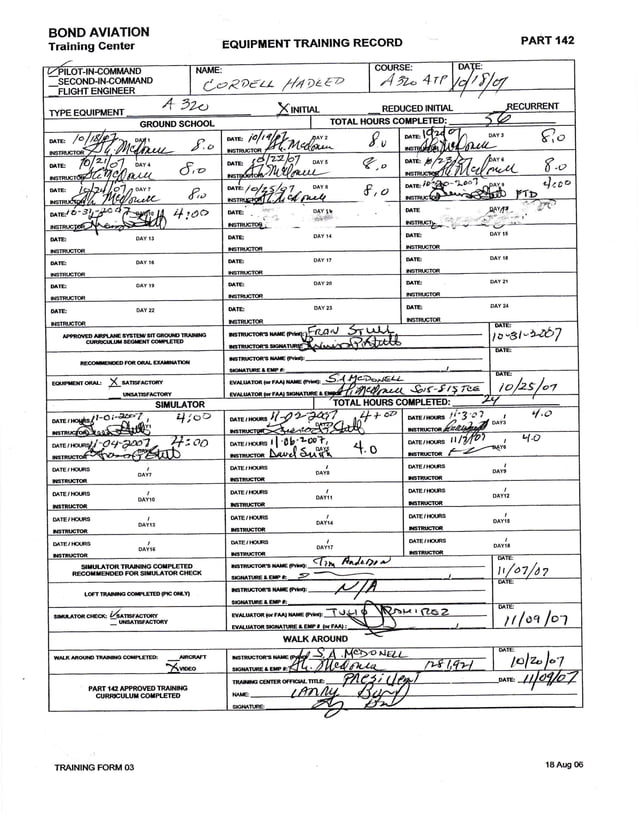 BOND AVIATION
Training Center
EQUIPMENT TRAINING RECORD
PART 142
✓ PILOT-IN-COMMAND
__SECOND-IN-COMMAND
__FLIGHT ENGINEER
NAME:
CORDELL HADEED
COURSE:
A320 ATP
DATE:
10/18/07
TYPE EQUIPMENT A 320
X INITIAL
REDUCED INITIAL
RECURRENT
GROUND SCHOOL
TOTAL HOURS COMPLETED: 56
DATE: 10/18/07 DAY 1 8.0
INSTRUCTOR McDonell
DATE: 10/19/07 DAY 2 8.0
INSTRUCTOR McDonell
DATE: DAY 3 8.0
INSTRUCTOR McDonell
DATE: 10/21/07 DAY 4 8.0
INSTRUCTOR McDonell
DATE: 10/22/07 DAY 5 8.0
INSTRUCTOR McDonell
DATE: DAY 6 8.0
INSTRUCTOR McDonell
DATE: 10/24/07 DAY 7 8.0
INSTRUCTOR McDonell
DATE: 10/25/07 DAY 8 8.0
INSTRUCTOR McDonell
DATE: 10-30-2007 DAY 9 4:00
INSTRUCTOR FTD
DATE: 10-31-2007 4:00
INSTRUCTOR
DATE:
INSTRUCTOR
DATE
INSTRUCTOR
DATE: DAY 13
INSTRUCTOR
DATE: DAY 14
INSTRUCTOR
DATE: DAY 15
INSTRUCTOR
DATE: DAY 16
INSTRUCTOR
DATE: DAY 17
INSTRUCTOR
DATE: DAY 18
INSTRUCTOR
DATE: DAY 19
INSTRUCTOR
DATE: DAY 20
INSTRUCTOR
DATE: DAY 21
INSTRUCTOR
DATE: DAY 22
INSTRUCTOR
DATE: DAY 23
INSTRUCTOR
DATE: DAY 24
INSTRUCTOR
APPROVED AIRPLANE SYSTEM/ SIT GROUND TRAINING
CURRICULUM SEGMENT COMPLETED
INSTRUCTOR'S NAME (Print): FRAN STULL
INSTRUCTOR'S SIGNATURE
DATE:
10-31-2007
RECOMMENDED FOR ORAL EXAMINATION
INSTRUCTOR'S NAME (Print):
SIGNATURE & EMP #:
EQUIPMENT ORAL: X SATISFACTORY
__ UNSATISFACTORY
EVALUATOR (or FAA) NAME (Print): S.A McDONELL
EVALUATOR (or FAA) SIGNATURE & EMP McDonell
DATE:
10/25/07
SIMULATOR
TOTAL HOURS COMPLETED: 24
DATE / HOURS 11-01-2007 4:00
INSTRUCTOR
DATE / HOURS 11-02-2007 4+00
INSTRUCTOR
DATE / HOURS 11-3-07 / 4.0
INSTRUCTOR DAY3
DATE / HOURS 11-04-2007 4:00
INSTRUCTOR
DATE / HOURS 11-06-2007, 4.0
INSTRUCTOR David
DATE / HOURS / 4.0
INSTRUCTOR DAY6
DATE / HOURS / DAY7
INSTRUCTOR
DATE / HOURS / DAY8
INSTRUCTOR
DATE / HOURS / DAY9
INSTRUCTOR
DATE / HOURS / DAY10
INSTRUCTOR
DATE / HOURS / DAY11
INSTRUCTOR
DATE / HOURS / DAY12
INSTRUCTOR
DATE / HOURS / DAY13
INSTRUCTOR
DATE / HOURS / DAY14
INSTRUCTOR
DATE / HOURS / DAY15
INSTRUCTOR
DATE / HOURS / DAY16
INSTRUCTOR
DATE / HOURS / DAY17
INSTRUCTOR
DATE / HOURS / DAY18
INSTRUCTOR
SIMULATOR TRAINING COMPLETED
RECOMMENDED FOR SIMULATOR CHECK
INSTRUCTOR'S NAME (Print): Tim Anderson
SIGNATURE & EMP #:
DATE:
11/07/07
LOFT TRAINING COMPLETED (PIC ONLY)
INSTRUCTOR'S NAME (Print): N/A
SIGNATURE & EMP #:
SIMULATOR CHECK: ✓ SATISFACTORY
__ UNSATISFACTORY
EVALUATOR (or FAA) NAME (Print): TULIO RAMIREZ
EVALUATOR SIGNATURE & EMP # (or FAA):
DATE:
11/09/07
WALK AROUND
WALK AROUND TRAINING COMPLETED: __ AIRCRAFT
X VIDEO
INSTRUCTOR'S NAME (Print) S.A. McDONELL
SIGNATURE & EMP #: McDonell
DATE:
10/20/07
PART 142 APPROVED TRAINING
CURRICULUM COMPLETED
TRAINING CENTER OFFICIAL TITLE: President
NAME: LARRY Bond
SIGNATURE:
DATE: 11/09/07
TRAINING FORM 03
18 Aug 06